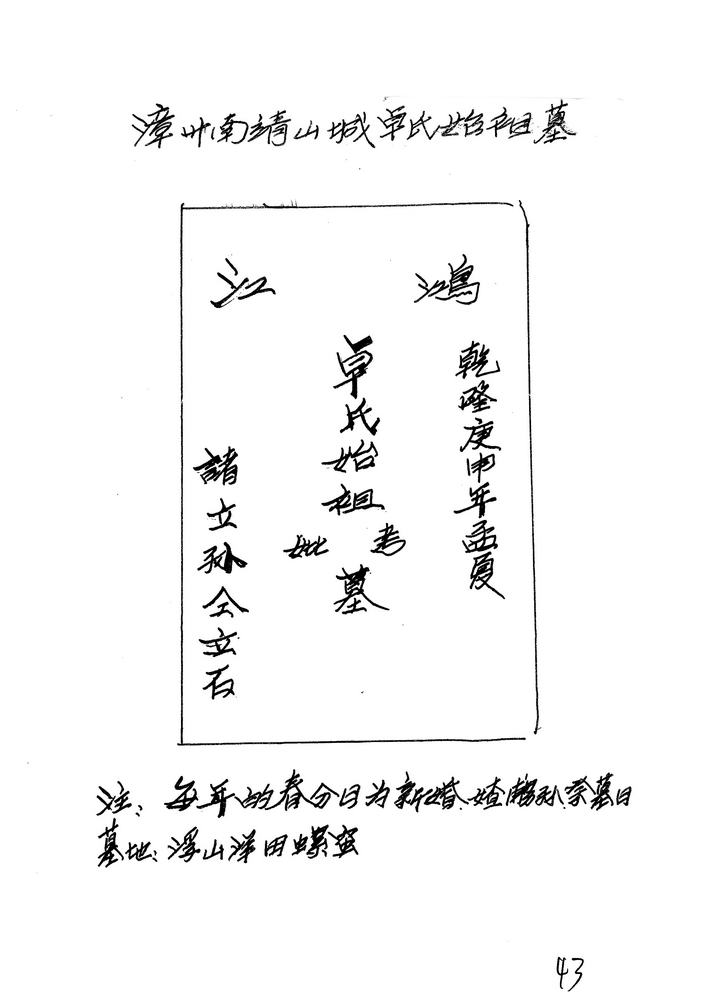 漳州南靖山城卓氏始祖墓
鴻江
乾隆庚申年孟夏
卓氏始祖
考妣
墓
諸立孙仝立石
注：每年的春分日为新婚、孙祭墓日
墓地：浮山洋田螺
43